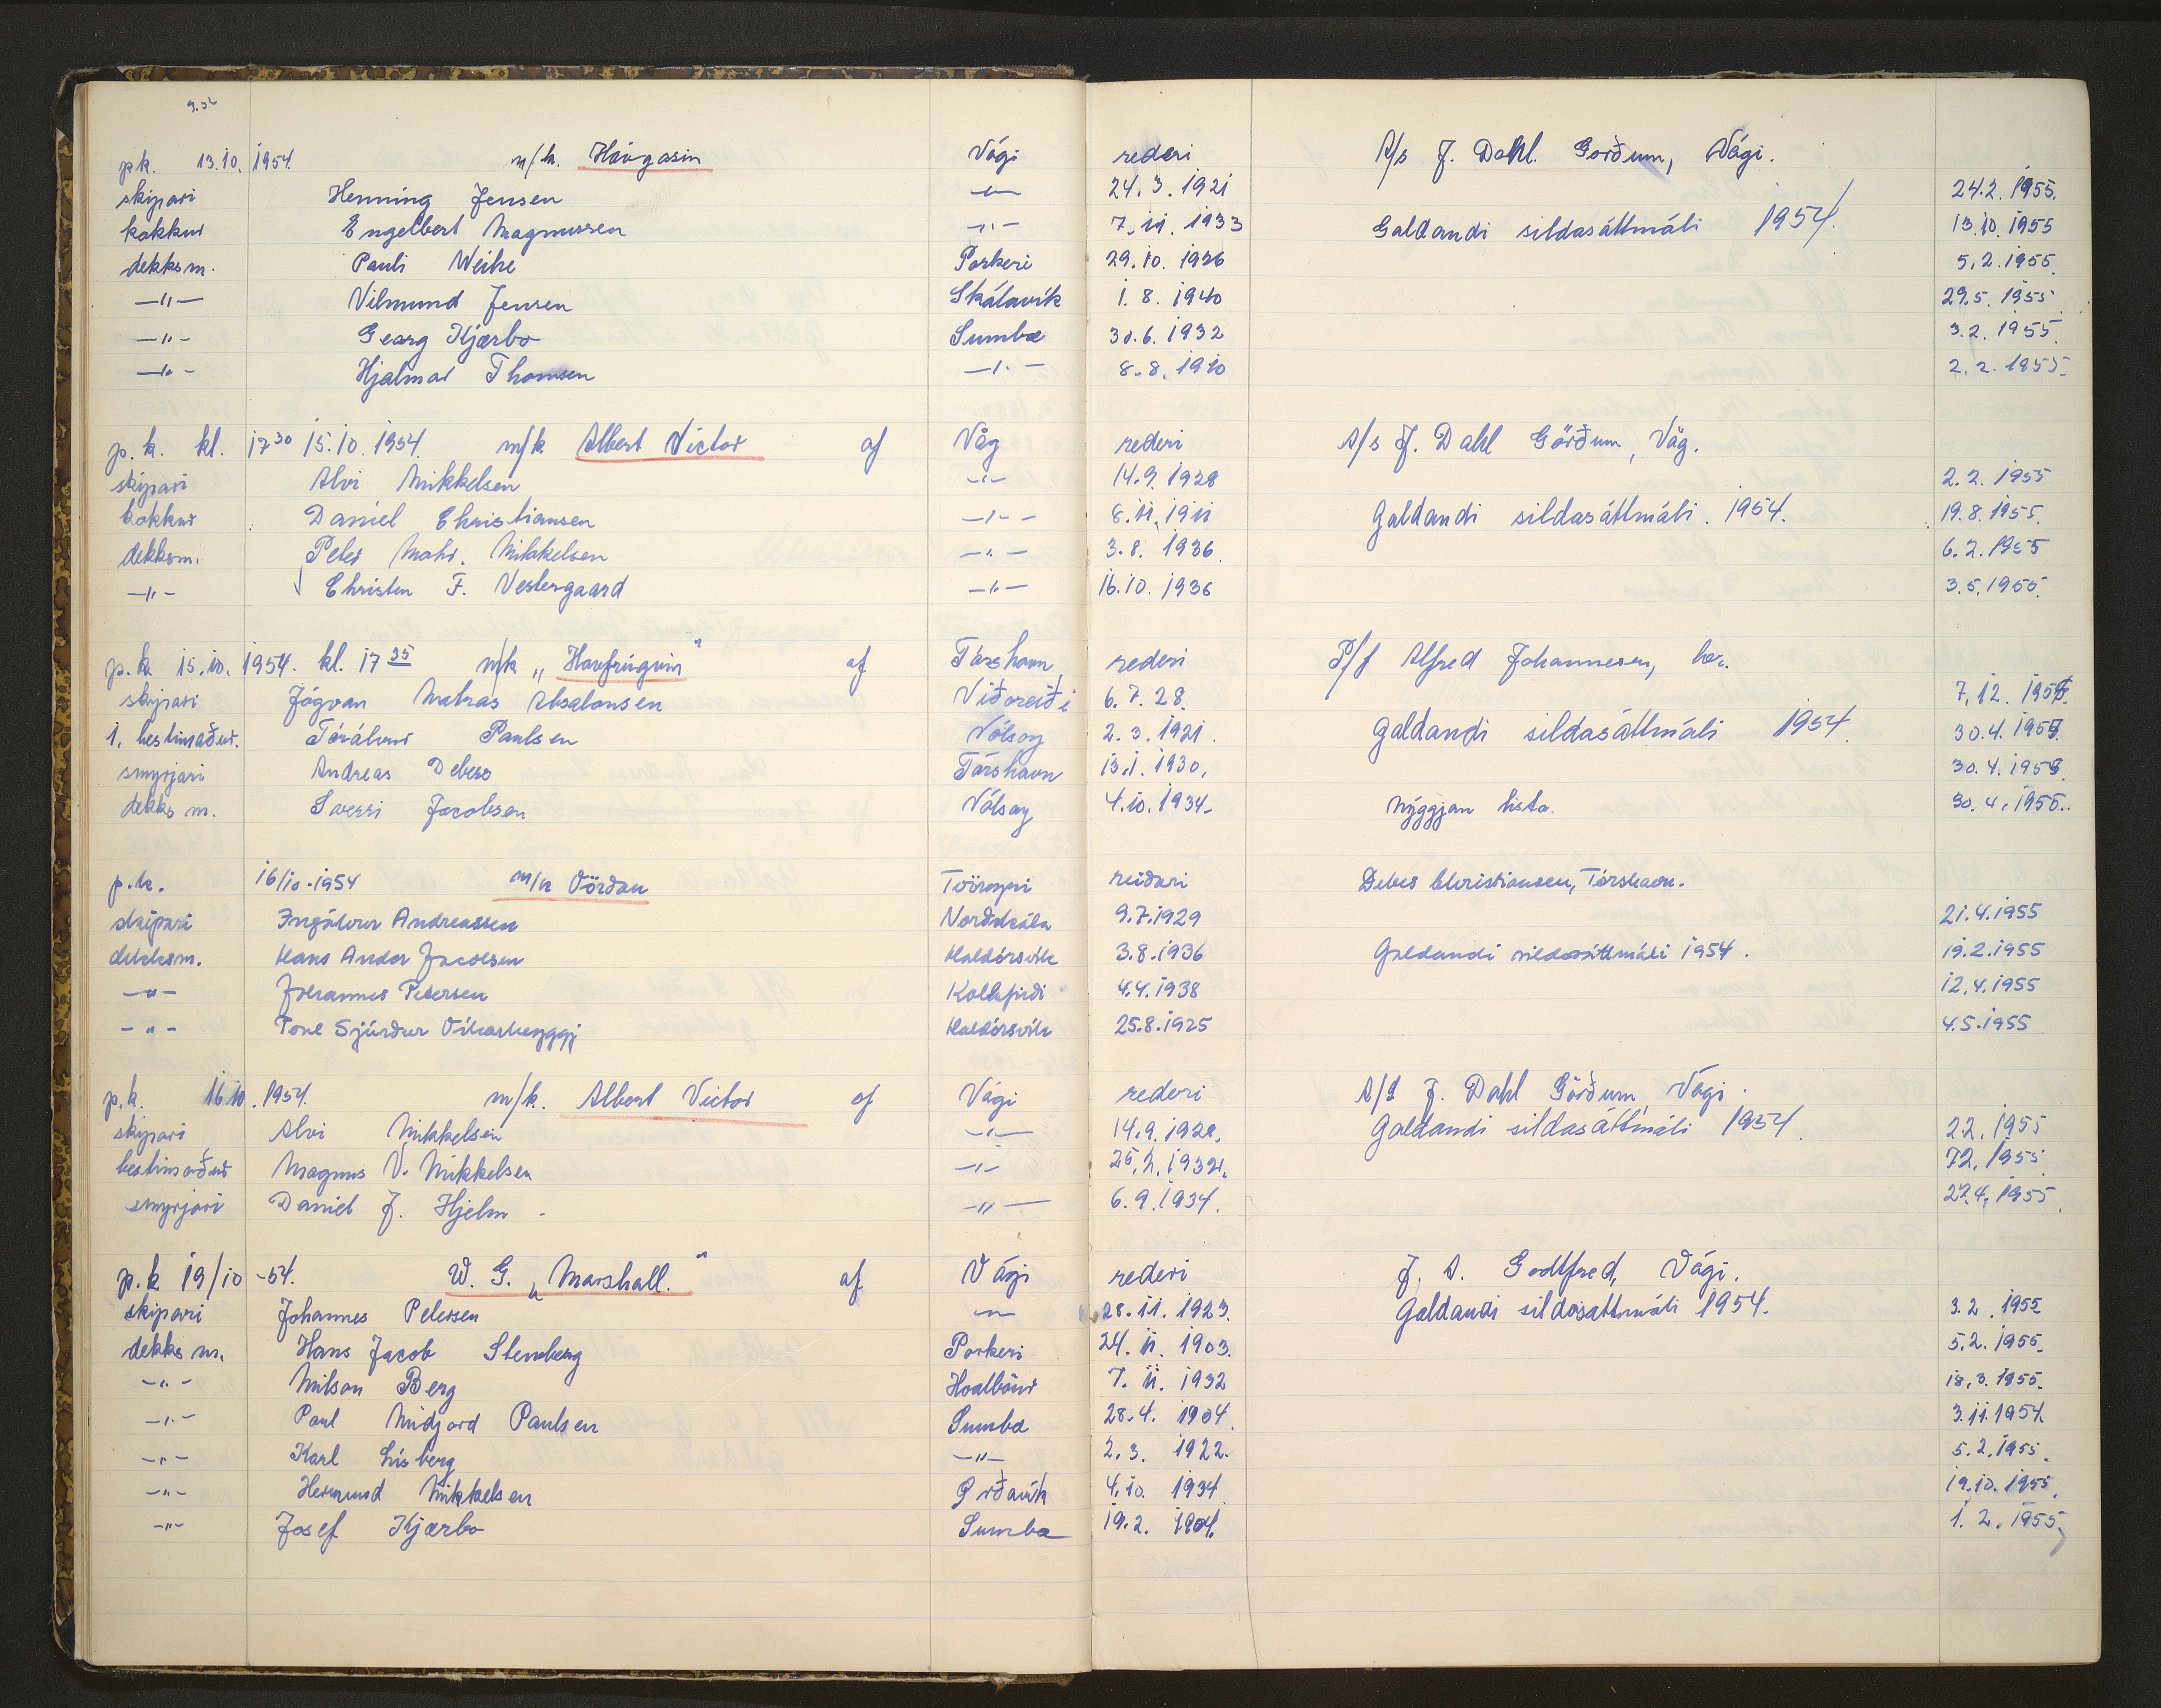 pk. 13.10. 1954. m/k. Hávgasin Vági rederi A/s J. Dahl. Gørðum, Vági.
skipari Henning Jensen —"— 24. 3. 1921 24.2. 1955.
kokkur Engelbert Magnussen —"— 7. 11. 1933 Galdandi sildasáttmáli 1954. 13.10. 1955
dekksm. Pauli Weihe Porkeri 29.10. 1926 5.2.1955.
—"— Vilmund Jensen Skálavík 1. 8. 1940 29.5. 1955
—"— Georg Kjærbo Sumba 30.6. 1932 3.2. 1955.
—"— Hjalmar Thomsen —"— 8.8. 1910 2.2. 1955.
p.k. kl. 17 30 15.10. 1954. m/k Albert Victor af Våg rederi A/s J. Dahl Görðum, Våg.
skipari Alvi Mikkelsen —"— 14.9. 1928 2.2. 1955
kokkur Daniel Christiansen —"— 8.11.1911 Galdandi sildasáttmáli. 1954. 19.8.1955.
dekksm. Peter Mohr. Mikkelsen —"— 3.8. 1936. 6.2.1955
—"— Christen F. Vestergaard —"— 16.10. 1936 3.5.1955.
p.k. 15.10. 1954. kl. 17 35 m/k „Havfrúgvin" af Tórshavn rederi P/f Alfred Johannesen, her.
skipari Jógvan Matras Absalonsen Viðareiði 6.7. 28. 7.12. 1955.
1. bestimaður. Tórálvur Paulsen Nólsoy 2. 3. 1921. Galdandi sildasáttmáli 1954. 30.4. 1955.
smyrjari Andreas Debess Tórshavn 13.1. 1930. 30.4.1955.
dekks m. Sverri Jacobsen Nólsoy 4.10.1934. Nýggjan lista. 30.4.1955.
p.k. 16/10.1954 m/k Vörðan Tvöroyri reiðari Debes Christiansen, Tórshavn.
skipari Ingálvur Andreassen Norðskála 9.7.1929 21.4.1955
dekksm. Hans Andor Jacobsen Haldórsvík 3.8.1936 Galdandi sildasáttmáli 1954. 19.2.1955
—"— Johannes Petersen Kollafirði 4.4.1938 12.4.1955
—"— Sjúrður Haldórsvík 25.8.1925 4.5.1955
p.k. 16 10. 1954. m/k. Albert Victor af Vági rederi A/S J. Dahl Görðum Vági.
skipari Alvi Mikkelsen —"— 14.9.1928. Galdandi sildasáttmáli 1954. 2.2. 1955
bestimaður Magnus V. Mikkelsen —"— 7.2. 1955.
smyrjari Daniel J. Hjelm. —"— 6.9.1934. 22.4. 1955.
p.k 19/10 -54. W. G. „Marshall." af Vági rederi J. S. Godtfred, Vági.
skipari Johannes Petersen —"— 28.11. 1923. Galdandi sildasáttmáli 1954. 3.2. 1955
dekks m. Hans Jacob Stenberg Porkeri 24. 11. 1903. 5.2. 1955.
—"— Milson Berg Hvalbøur 7. 11. 1932 18.3. 1955.
—"— Poul Midjord Paulsen Sumba 28.4. 1904. 3.11.1954.
—"— Karl Lisberg —"— 2.3. 1922. 5.2.1955.
—"— Hermund Mikkelsen Ørðavík 4.10. 1934. 19.10. 1955.
—"— Josef Kjærbo Sumba 19.2. 1904. 1. 2. 1955.